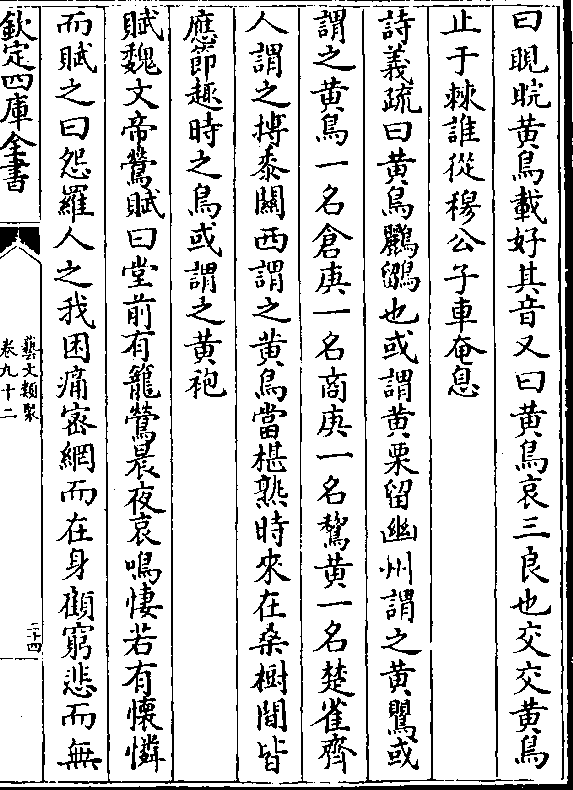 曰睍睆黄鳥載好其音又曰黄鳥哀三良也交交黄鳥
止于棘誰從穆公子車奄息
詩義疏曰黄鳥鸝鶹也或謂黄栗留幽州謂之黄鸎或
謂之黄鳥一名倉庚一名商庚一名鵹黄一名楚雀齊
人謂之搏黍關西謂之黄鳥當椹熟時來在桑樹間皆
應節趣時之鳥或謂之黄袍
賦魏文帝鶯賦曰堂前有籠鶯晨夜哀鳴悽若有懷憐
而賦之曰怨羅人之我困痛宻網而在身顧窮悲而無
欽定四庫全書
藝文類聚
卷九十二
二十四